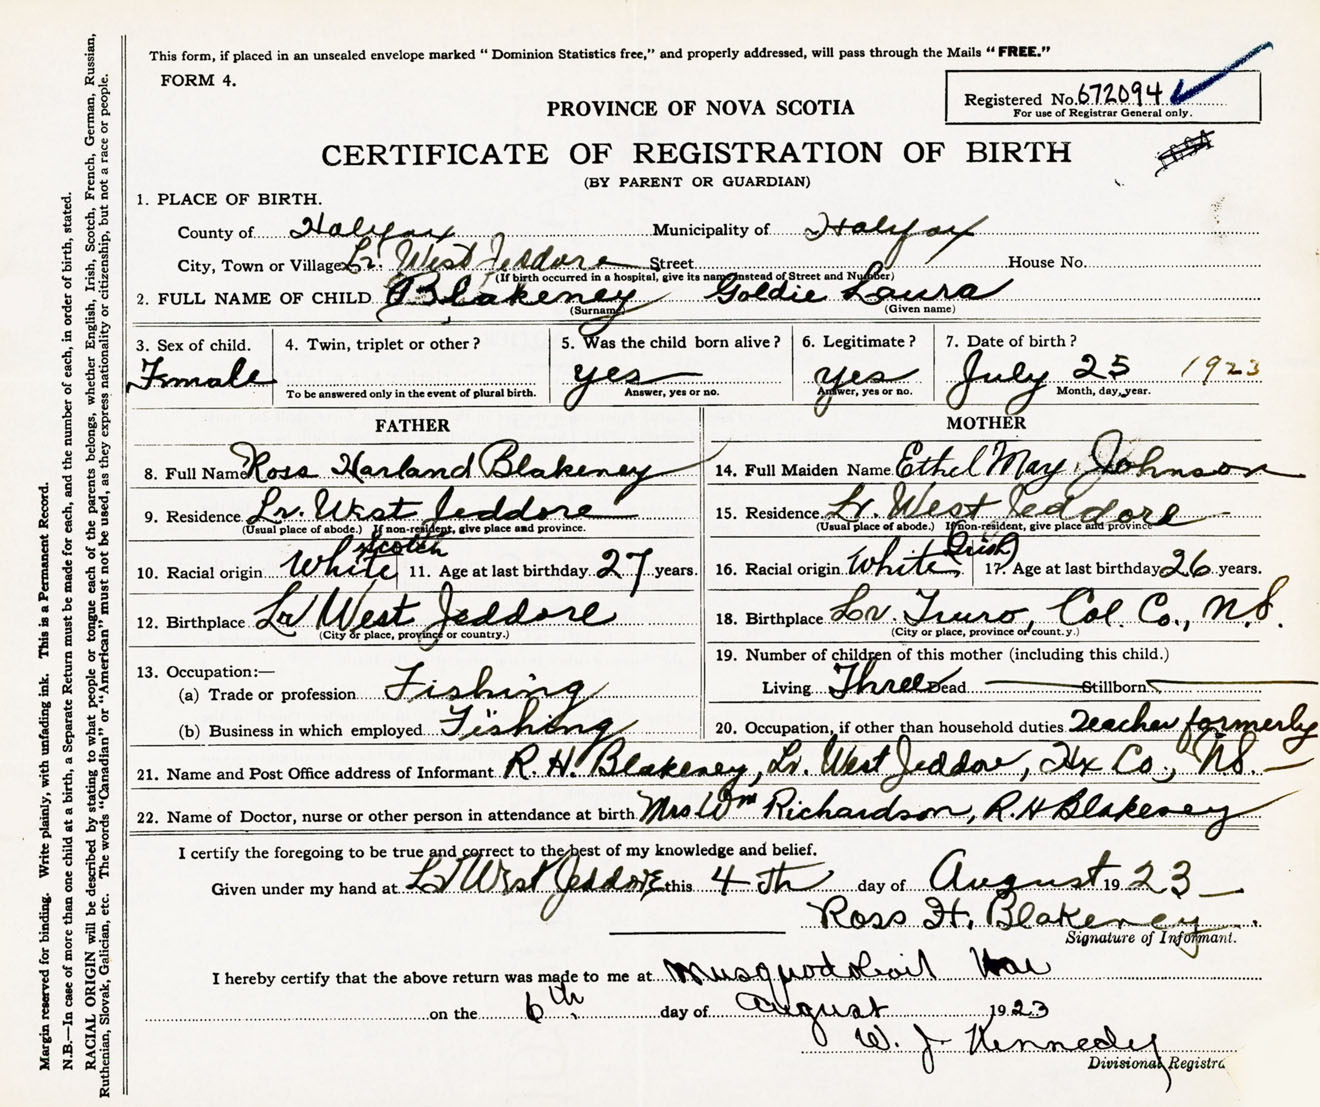 This form, if placed in an unsealed envelope marked "Dominion Statistics free," and properly addressed, will pass through the Mails "FREE."
FORM 4.
Registered No. 672094
For use of Registrar General only.
PROVINCE OF NOVA SCOTIA
CERTIFICATE OF REGISTRATION OF BIRTH
(BY PARENT OR GUARDIAN)
1. PLACE OF BIRTH.
County of Halifax Municipality of Halifax
City, Town or Village Lr. West Jeddore Street House No.
(If birth occurred in a hospital, give its name instead of Street and Number)
2. FULL NAME OF CHILD Blakeney Goldie Laura
(Surname) (Given name)
3. Sex of child. 4. Twin, triplet or other? 5. Was the child born alive? 6. Legitimate? 7. Date of birth?
Female yes yes July 25 1923
To be answered only in the event of plural birth. Answer, yes or no. Answer, yes or no. Month, day, year.
FATHER MOTHER
8. Full Name Ross Harland Blakeney 14. Full Maiden Name Ethel May Johnson
9. Residence Lr. West Jeddore 15. Residence Lr. West Jeddore
(Usual place of abode.) If non-resident, give place and province. (Usual place of abode.) If non-resident, give place and province
Scotch Irish
10. Racial origin White 11. Age at last birthday 27 years. 16. Racial origin White 17. Age at last birthday 26 years.
12. Birthplace Lr West Jeddore 18. Birthplace Lr. Truro, Col. Co., N.S.
(City or place, province or country.) (City or place, province or count.y.)
13. Occupation:— 19. Number of children of this mother (including this child.)
(a) Trade or profession Fishing Living Three Dead Stillborn
(b) Business in which employed Fishing 20. Occupation, if other than household duties Teacher formerly
21. Name and Post Office address of Informant R. H. Blakeney, Lr. West Jeddore, Hx Co., N.S.
22. Name of Doctor, nurse or other person in attendance at birth Mrs Wm Richardson, R. H Blakeney
I certify the foregoing to be true and correct to the best of my knowledge and belief.
Given under my hand at Lr West Jeddore this 4th day of August 1923
Ross H. Blakeney
Signature of Informant.
I hereby certify that the above return was made to me at Musquodoboit Har
on the 6th day of August 1923
W. J Kennedy
Divisional Registra
Margin reserved for binding. Write plainly, with unfading ink. This is a Permanent Record.
N.B.—In case of more than one child at a birth, a Separate Return must be made for each, and the number of each, in order of birth, stated.
RACIAL ORIGIN will be described by stating to what people or tongue each of the parents belongs, whether English, Irish, Scotch, French, German, Russian,
Ruthenian, Slovak, Galician, etc. The words "Canadian" or "American" must not be used, as they express nationality or citizenship, but not a race or people.